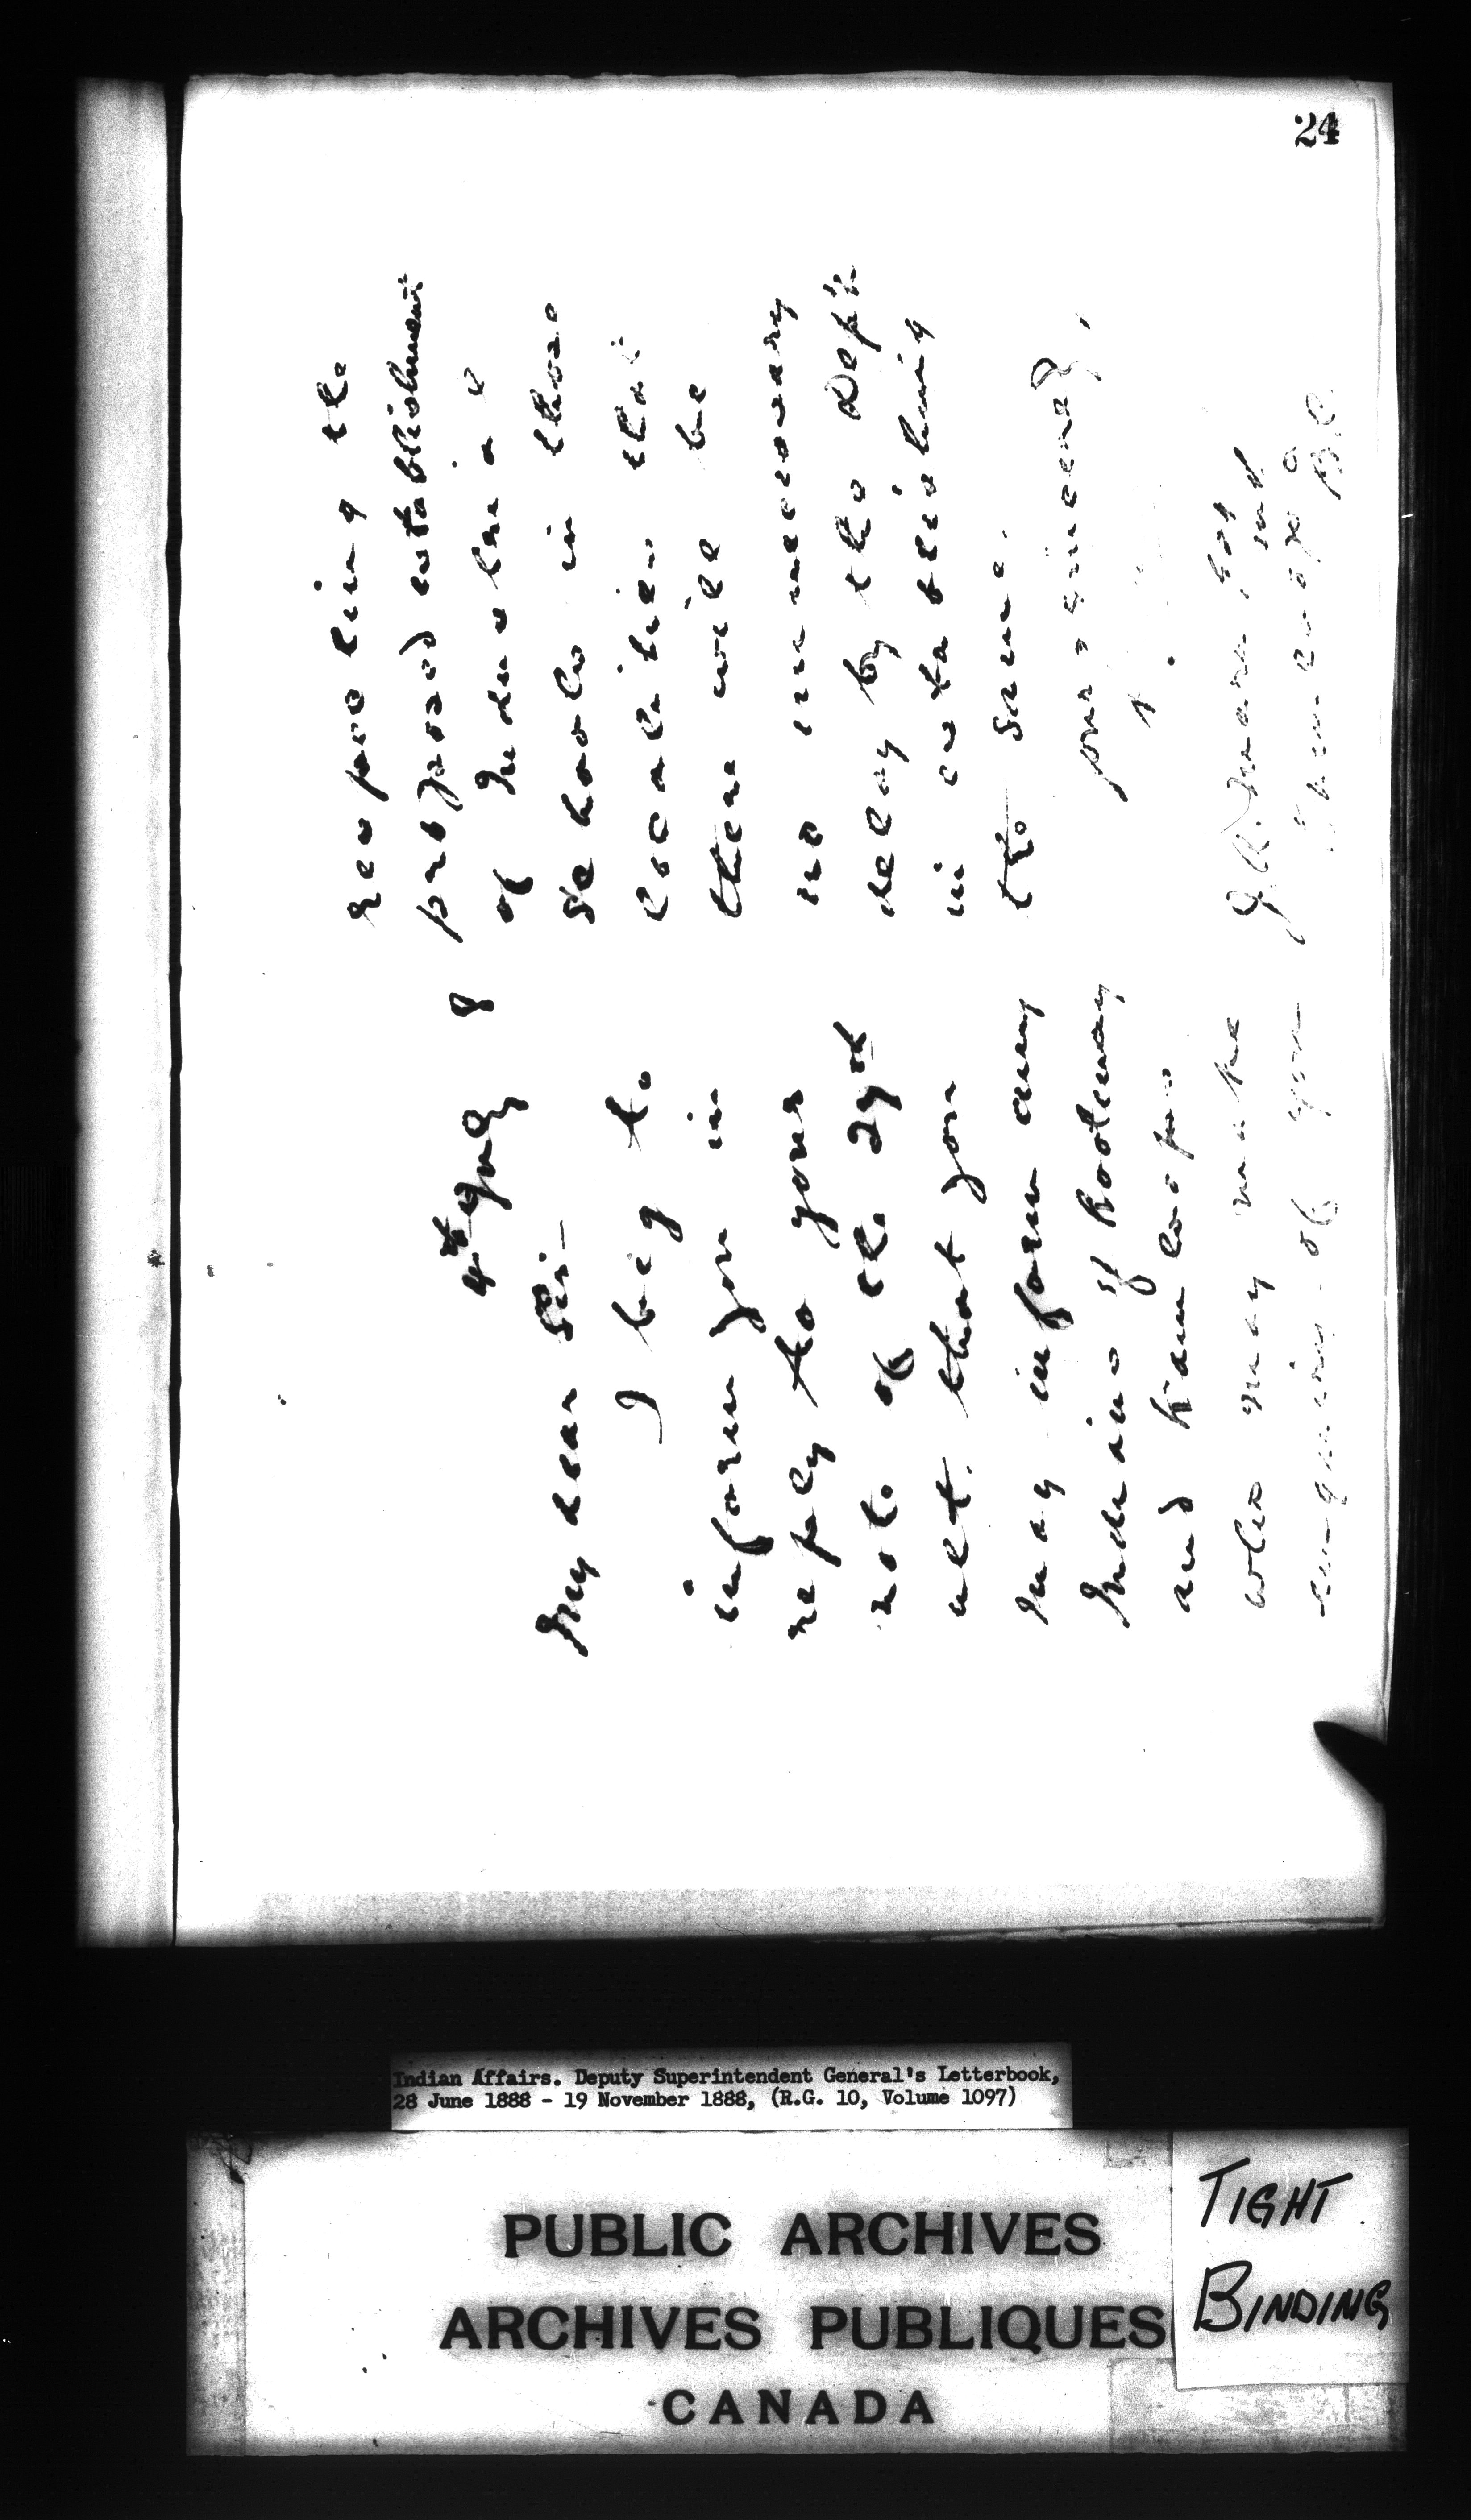 24
4th July 8
My dear Sir
I beg to
inform you in
reply to your
note of the 27th
ult. that you
may inform any
Indians of Kootenay
and Kamloops
who may make
enquiries of you
respecting the
proposed establishment
of Industrial
Schools in those
localities that
there will be
no unnecessary
delay by the Dept
in establishing
the same.
yours sincerely,
J. A. Mara Esq
Kamloops
B.C.
Indian Affairs. Deputy Superintendent General's Letterbook,
28 June 1888 - 19 November 1888, (R.G. 10, Volume 1097)
PUBLIC ARCHIVES
ARCHIVES PUBLIQUES
CANADA
TIGHT
BINDING